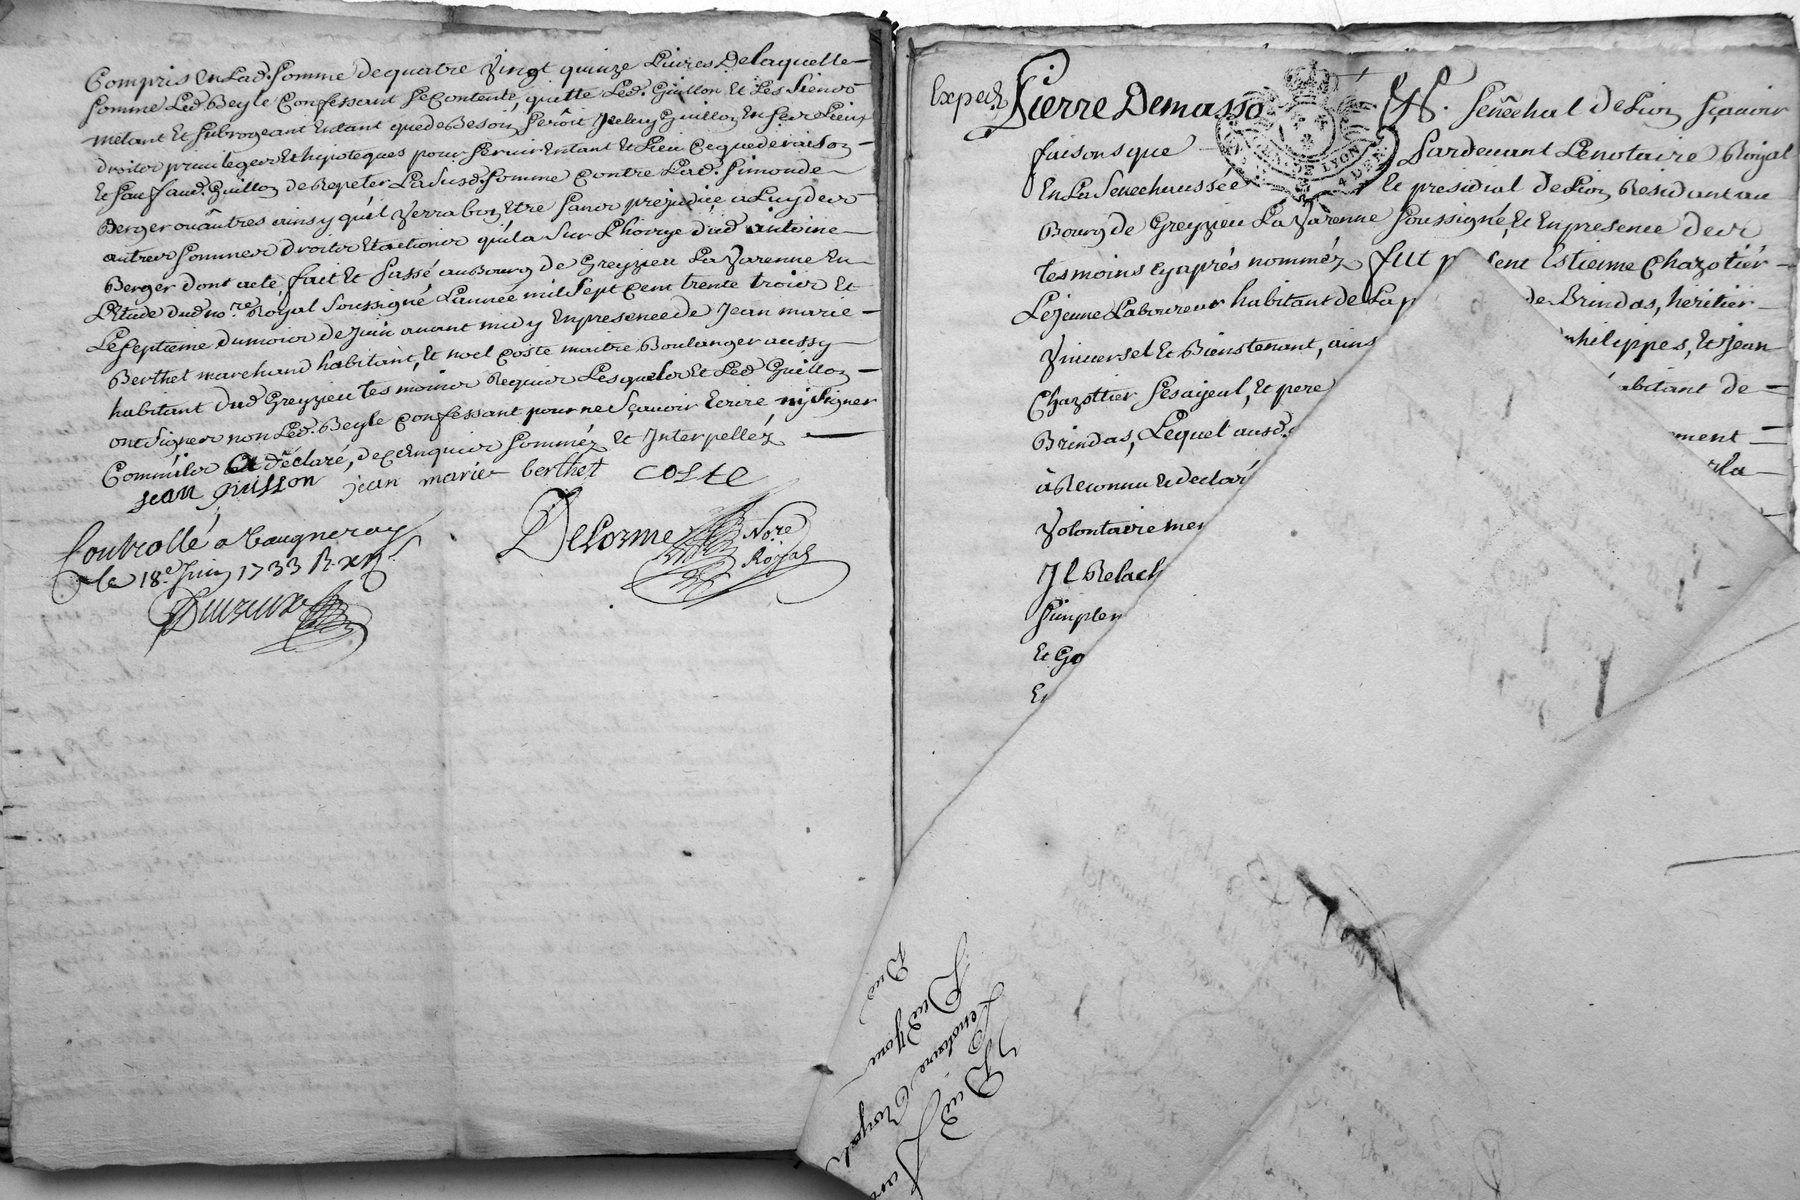 Compris En Lad. Somme de quatre Vingt quinze Livres De laquelle
Somme Led. Beyle Confessant Se Contente, quitte Led. Guillon Et Les Siens
métant Et Subrogeant Entant que de Besoin Seroit Iceluy Guillon En Ses Lieux
droitor privileges Et hipoteques pour Servir Entant Et Lieu Ce que de raison
Et Sauf aud. Guillon de Repeter La Susd. Somme Contre Lad. Simonde
Berger ou autres ainsy qu'il Verra bon Etre Sans prejudice a Luy des
autres Sommes droits Et actions qu'il a Sur L'hoirye dud antoine
Berger dont acte, fait Et Passé au Bourg de Greyzieu La Varenne En
L'Etude dud no.re Royal Soussigné L'année mil Sept Cent trente trois Et
Le Septieme du mois de Juin avant midy En presence de Jean marie
Berthet marchand habitant, Et noel Coste maitre Boulanger aussy
habitant dud Greyzieu tesmoins Requis Lesquels Et Led Guillon
ont Signer non Led. Beyle Confessant pour ne Sçavoir Ecrire ny Signer
Comm'ils ont déclaré, de ce Enquis Sommés Et Interpellés
jean guillon jean marie berthet COSTE
Controllé a Vaugneray
le 18.e Juin 1733 R.
Delorme No.re
Royal
Exped.
Pierre Demasso &&. Senéchal de Lion Sçavoir
GEN. DE LYON
4 DEN
faisons que Pardevant Le notaire Royal
En La Senechaussée Et presidial de Lion Residant au
Bourg de Greyzieu La Varenne Soussigné, Et En presence des
tesmoins cy aprés nommés fut p sent Estienne Chazotier
Lejeune Laboureur habitant de La p de Brindas, héritier
Vniversel Et Bienstenant, ains philippes, Et Jean
Chazottier Ses ayeul, Et pere abitant de
Brindas, Lequel ausd. ment
à Reconnu Et declaré rla
Volontairemen
Il Relach
Simplem
Et Go
En
Dud
Dud
Lenotaire Royal
Dud